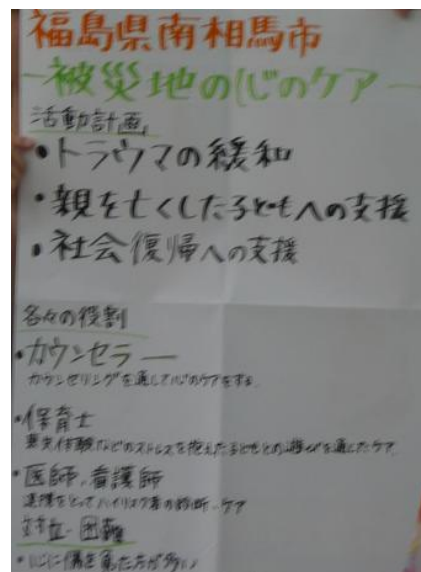 福島県南相馬市
ー被災地の心のケアー
活動計画
・トラウマの緩和
・親を亡くした子どもへの支援
・社会復帰への支援
各々の役割
・カウンセラー
カウンセリングを通して心のケアをする
・保育士
喪失体験などのストレスを抱えた子どもとの遊びを通したケア
・医師、看護師
連携をとってハイリスク者の診断・ケア
対立・困難
・心に傷を負った方が多い